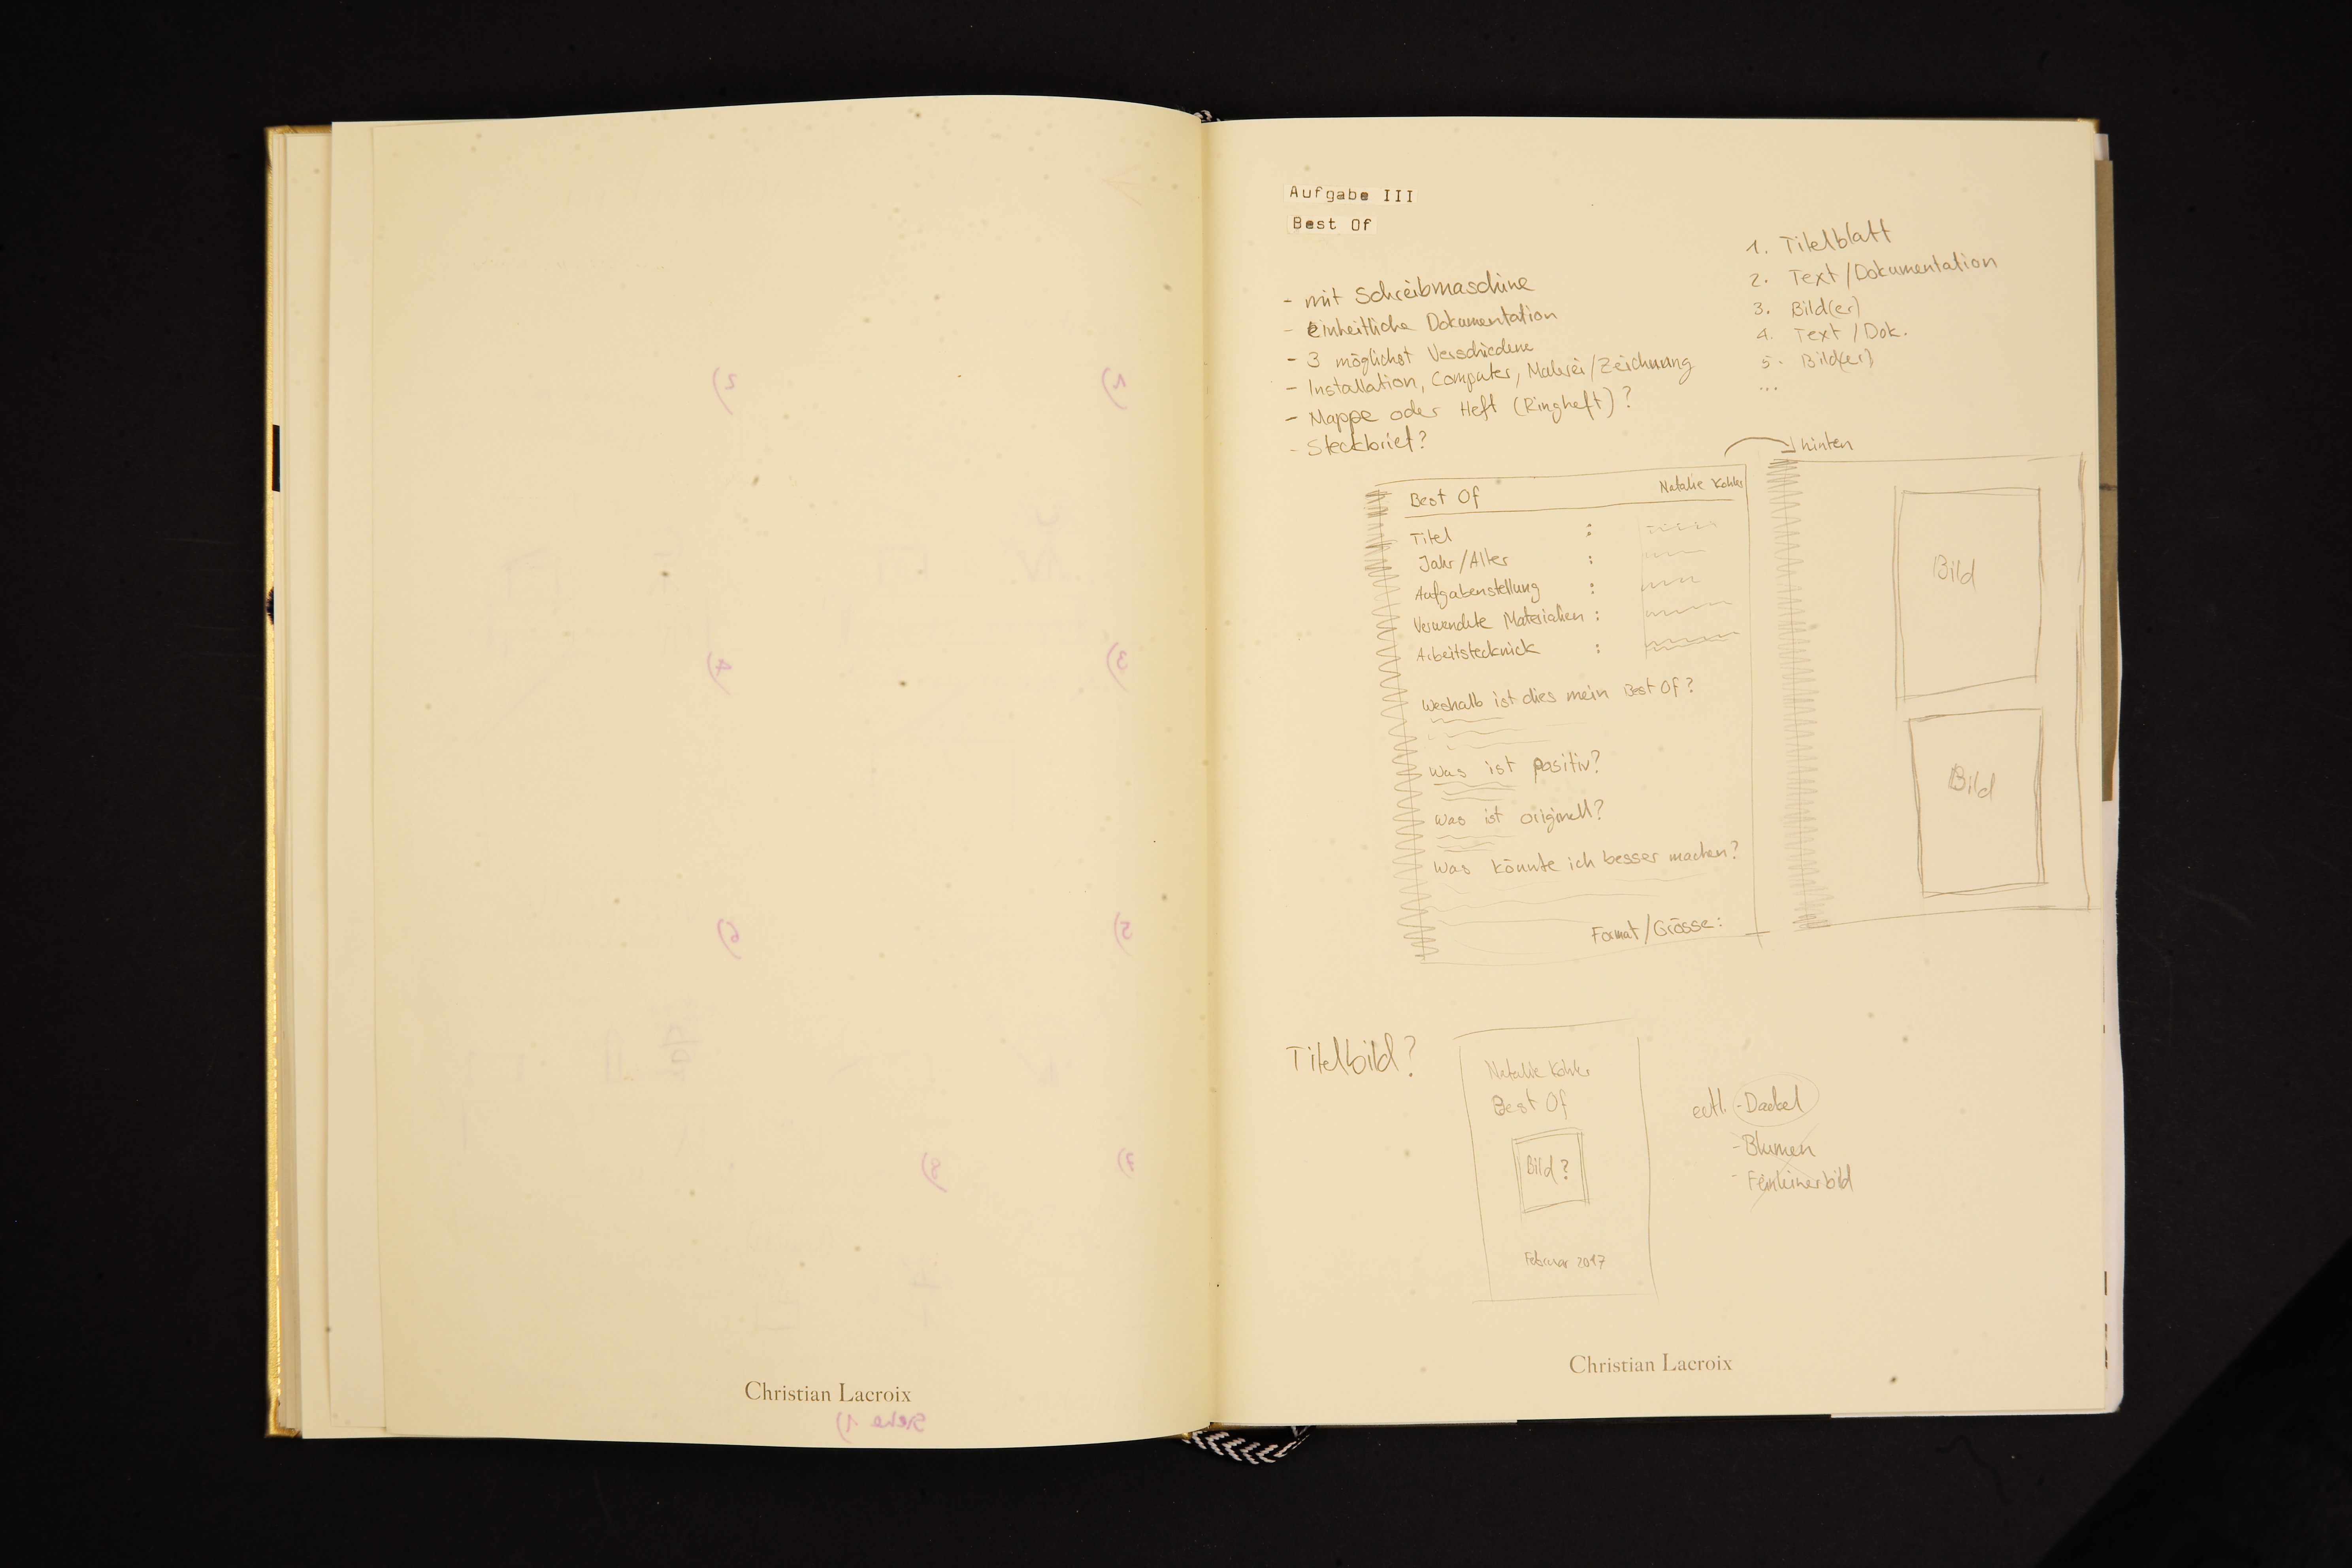 Christian Lacroix
Siehe 1)
1)
2)
3)
4)
5)
6)
7)
8)
Aufgabe III
Best Of
- mit Schreibmaschine
- einheitliche Dokumentation
- 3 möglichst Verschiedene
- Installation, Computer, Malerei/Zeichnung
- Mappe oder Heft (Ringheft)?
- Steckbrief?
1. Titelblatt
2. Text/Dokumentation
3. Bild(er)
4. Text/Dok.
5. Bild(er)
...
hinten
Best Of Natalie Kohler
Titel :
Jahr/Alter :
Aufgabenstellung :
Verwendete Materialien :
Arbeitstecknick :
Weshalb ist dies mein Best Of?
Was ist positiv?
Was ist originell?
Was könnte ich besser machen?
Format/Grösse:
Bild
Bild
Titelbild?
Natalie Kohler
Best Of
Bild?
Februar 2017
evtl. - Dackel
- Blumen
- Feinlinerbild
Christian Lacroix